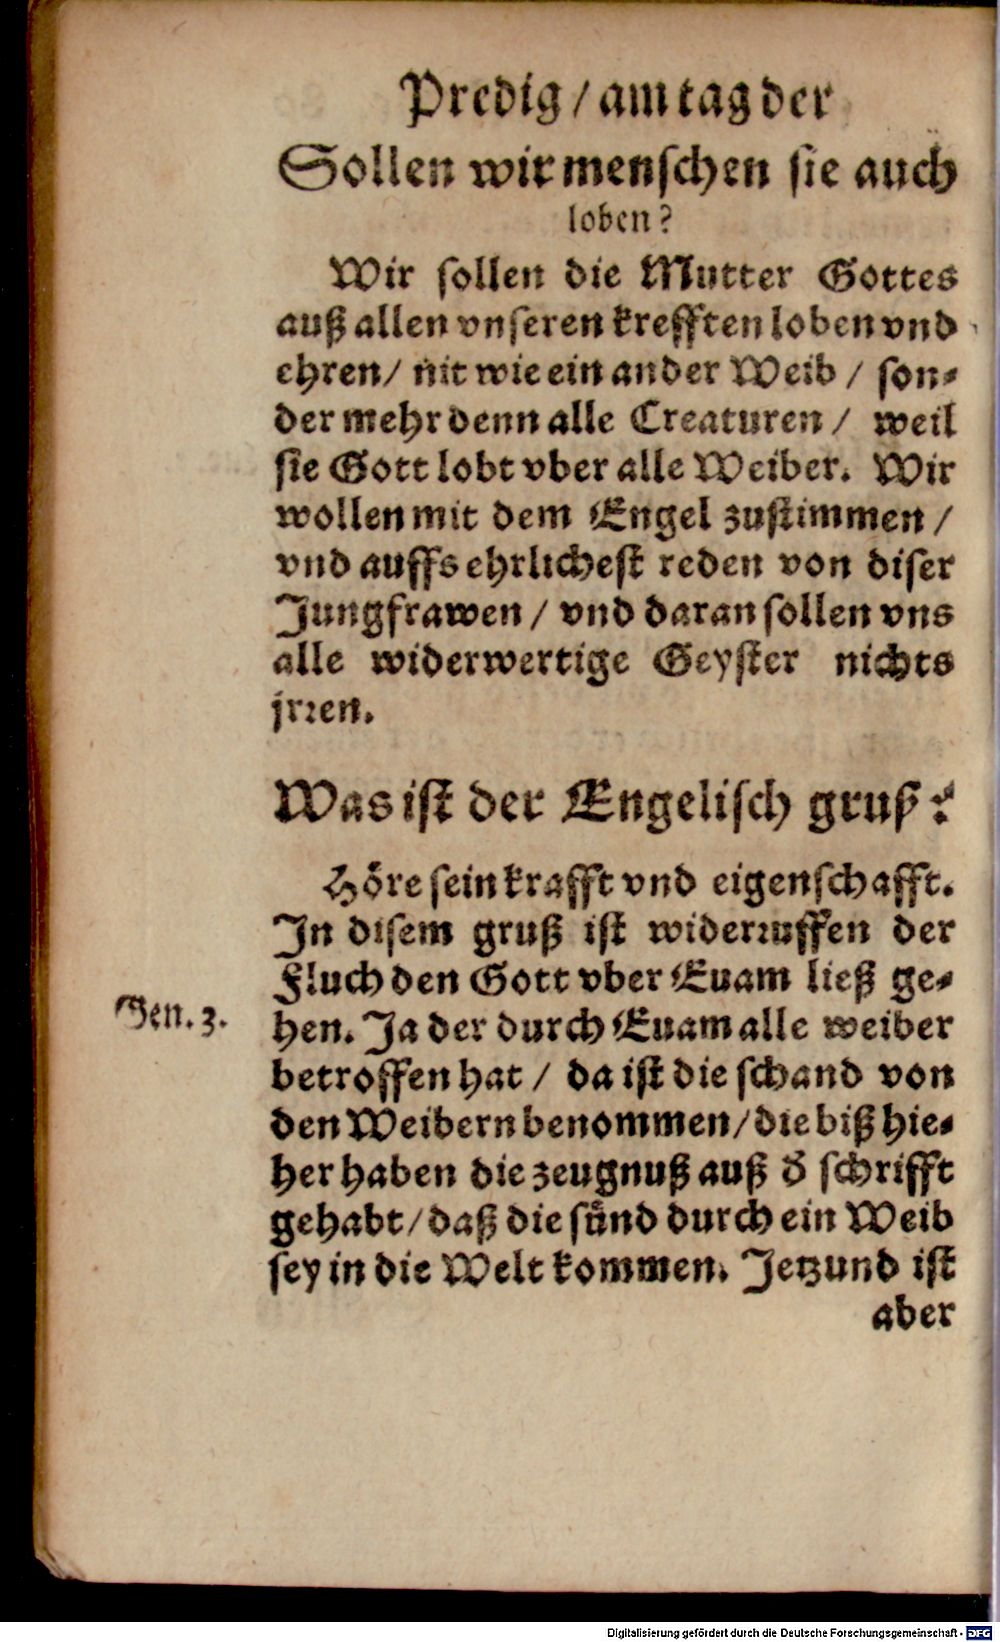 Predig / am tag der
Sollen wir menschen sie auch
loben?
Wir sollen die Mutter Gottes
auß allen vnseren krefften loben vnd
ehren / nit wie ein ander Weib / son⸗
der mehr denn alle Creaturen / weil
sie Gott lobt vber alle Weiber. Wir
wollen mit dem Engel zustimmen /
vnd auffs ehrlichest reden von diser
Jungfrawen / vnd daran sollen vns
alle widerwertige Geyster nichts
jrren.
Was ist der Engelisch gruß?
Höre sein krafft vnd eigenschafft.
In disem gruß ist widerruffen der
Fluch den Gott vber Euam ließ ge⸗
Gen. 3.
hen. Ja der durch Euam alle weiber
betroffen hat / da ist die schand von
den Weibern benommen / die biß hie⸗
her haben die zeugnuß auß d̕ schrifft
gehabt / daß die sünd durch ein Weib
sey in die Welt kommen. Jetzund ist
aber
Digitalisierung gefördert durch die Deutsche Forschungsgemeinschaft - DFG